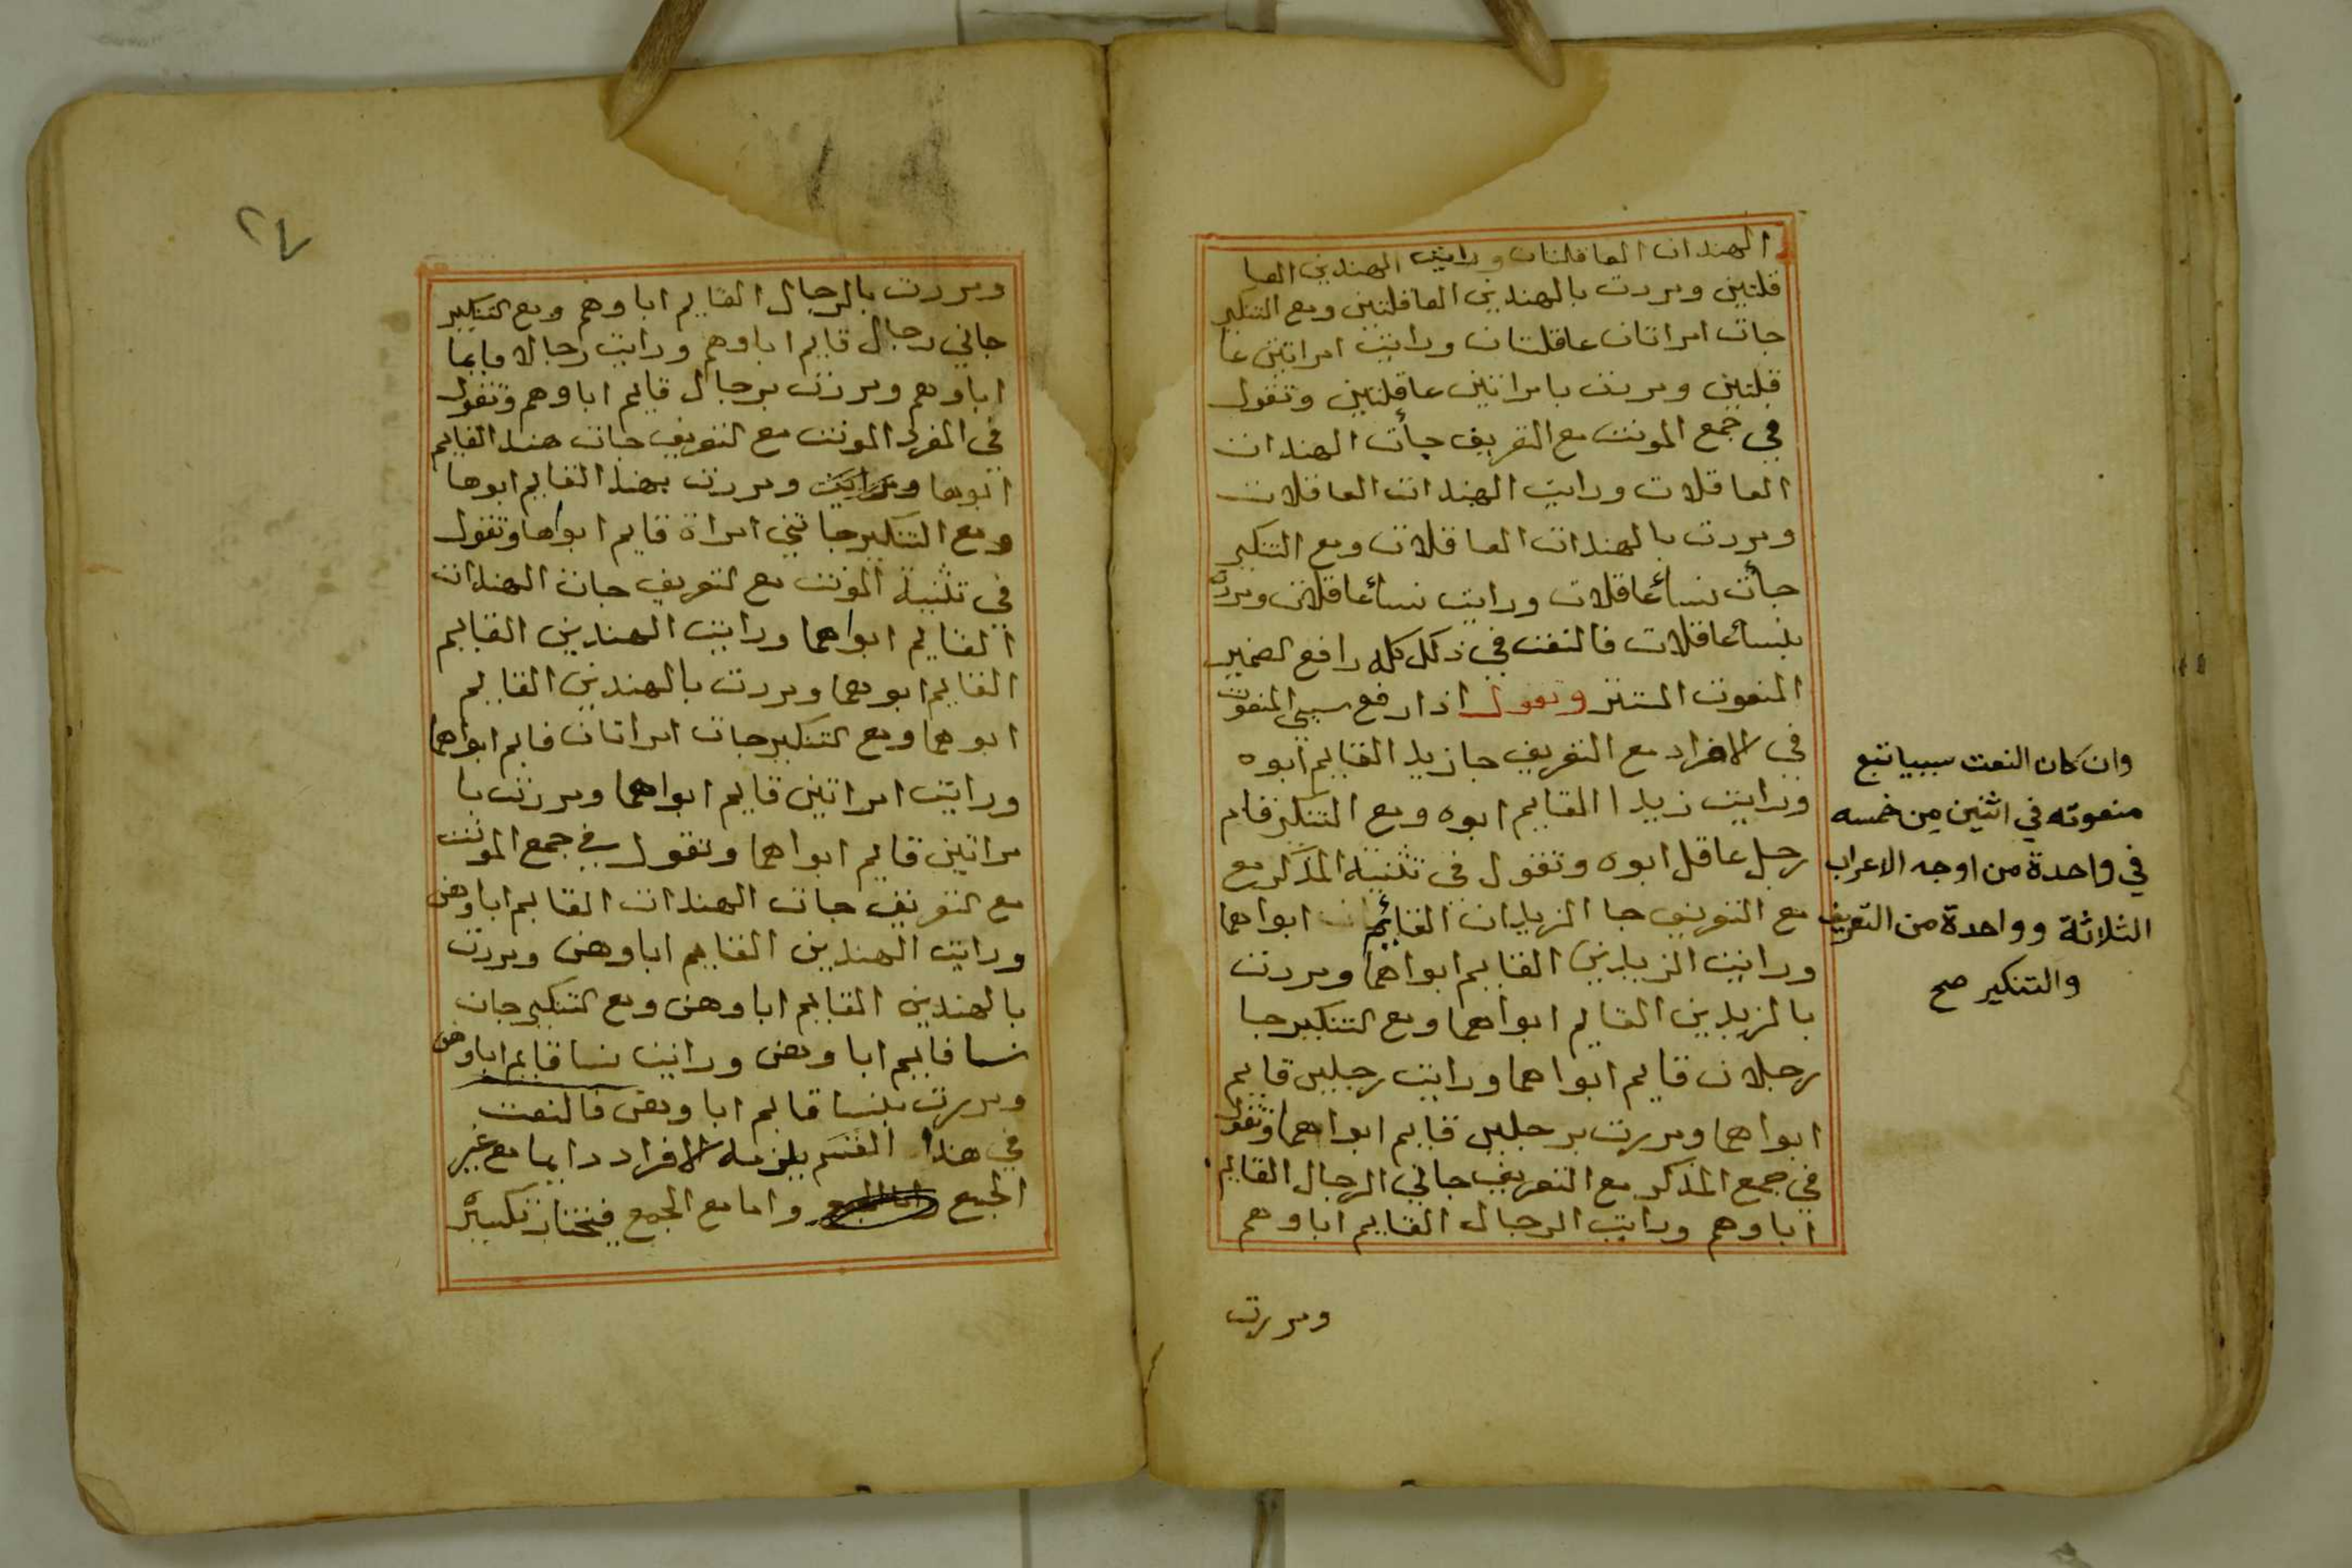 الهندان العاقلتان ورايت الهندين العا
قلتين ومررت بالهندين العاقلتين ومع التنكير
جات امراتان عاقلتان ورايت امراتين عا
قلتين ومررت بامراتين عاقلتين وتقول
في جمع المونث مع التعريف جأت الهندات
العاقلات ورايت الهندات العاقلات
ومررت بالهندات العاقلات ومع التنكير
جأت نسأعاقلات ورايت نسأعاقلات ومررت
بنسأعاقلات فالنعت في ذلك كله رافع لضمير
المنعوت المستتر وتقول اذا رفع سببي المنعوت
في الافراد مع التعريف جا زيد القايم ابوه
ورايت زيدا القايم ابوه ومع التنكير قام
رجل عاقل ابوه وتقول في تثنية المذكر مع
مع التعريف جا الزيدان القائم ابواهما
ورايت الزيدين القايم ابواهما ومررت
بالزيدين القايم ابواهما ومع التنكير جا
رجلان قايم ابواهما ورايت رجلين قايم
ابواهما ومررت برجلين قايم ابواهما وتقول
في جمع المذكر مع التعريف جاني الرجال القايم
اباوهم ورايت الرجال القايم اباوهم
ومررت
وان كان النعت سببيا تبع
منعوته في اثنين من خمسه
في واحدة من اوجه الاعراب
الثلاثة وواحدة من التعريف
والتنكير صح
٢٧
ومررت بالرجال القايم اباوهم ومع التنكير
جاني رجال قايم اباوهم ورايت رجالا قايما
اباوهم ومررت برجال قايم اباوهم وتقول
في المفرد المونث مع التعريف جات هند القايم
ابوها ورايت ومررت بهند القايم ابوها
ومع التنكير جاتني امراة قايم ابواها وتقول
في تثنية المونث مع التعريف جات الهندات
القايم ابواهما ورايت الهندين القايم
القايم ابوهما ومررت بالهندين القايم
ابوهما ومع التنكير جات امراتان قايم ابواهما
ورايت امراتين قايم ابواهما ومررت با
مراتين قايم ابواهما وتقول في جمع المونث
مع التعريف جات الهندات القايم اباوهن
ورايت الهندين القايم اباوهن ومررت
بالهندين القايم اباوهن ومع التنكير جات
نسا قايم اباوهن ورايت نسا قايم اباوهن
ومررت بنسا قايم اباوهن فالنعت
في هذا القسم يلزمه الافراد دايما مع غير
الجمع واما مع الجمع فيختار تكسيره